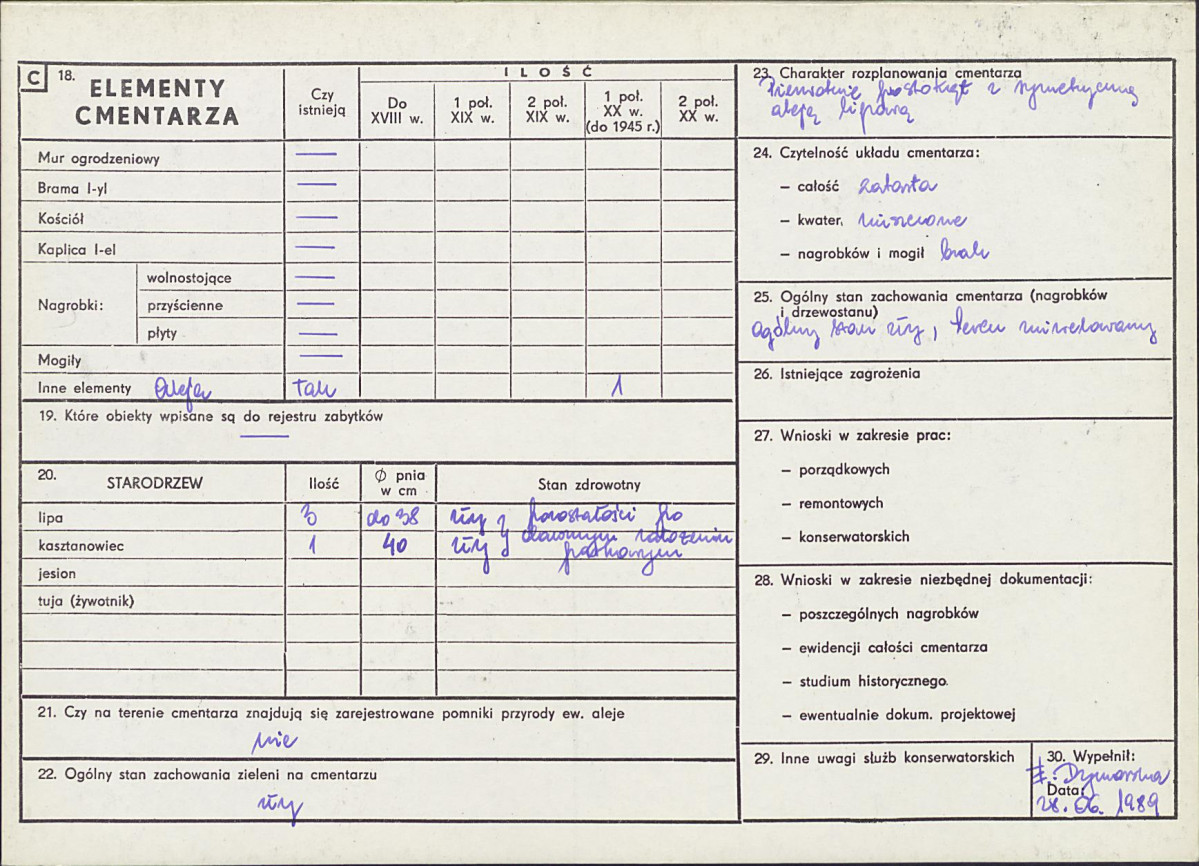 C 18. ELEMENTY CMENTARZA
Czy istnieją
ILOŚĆ
Do XVIII w.
1 poł. XIX w.
2 poł. XIX w.
1 poł. XX w. (do 1945 r.)
2 poł. XX w.
Mur ogrodzeniowy —
Brama I-yl —
Kościół —
Kaplica I-el —
Nagrobki:
wolnostojące —
przyścienne —
płyty —
Mogiły —
Inne elementy Aleja tak 1
19. Które obiekty wpisane są do rejestru zabytków
—
20. STARODRZEW Ilość Ø pnia w cm Stan zdrowotny
lipa 3 do 38 zły pozostałości po
kasztanowiec 1 40 zły dawnym założeniu
parkowym
jesion
tuja (żywotnik)
21. Czy na terenie cmentarza znajdują się zarejestrowane pomniki przyrody ew. aleje
nie
22. Ogólny stan zachowania zieleni na cmentarzu
zły
23. Charakter rozplanowania cmentarza
Pierwotnie prostokąt z symetryczną
aleją lipową
24. Czytelność układu cmentarza:
– całość zatarta
– kwater, zniszczone
– nagrobków i mogił brak
25. Ogólny stan zachowania cmentarza (nagrobków
i drzewostanu)
ogólny stan zły, teren zniwelowany
26. Istniejące zagrożenia
27. Wnioski w zakresie prac:
– porządkowych
– remontowych
– konserwatorskich
28. Wnioski w zakresie niezbędnej dokumentacji:
– poszczególnych nagrobków
– ewidencji całości cmentarza
– studium historycznego
– ewentualnie dokum. projektowej
29. Inne uwagi służb konserwatorskich
30. Wypełnił:
Dymarska
Data:
28. 06. 1989